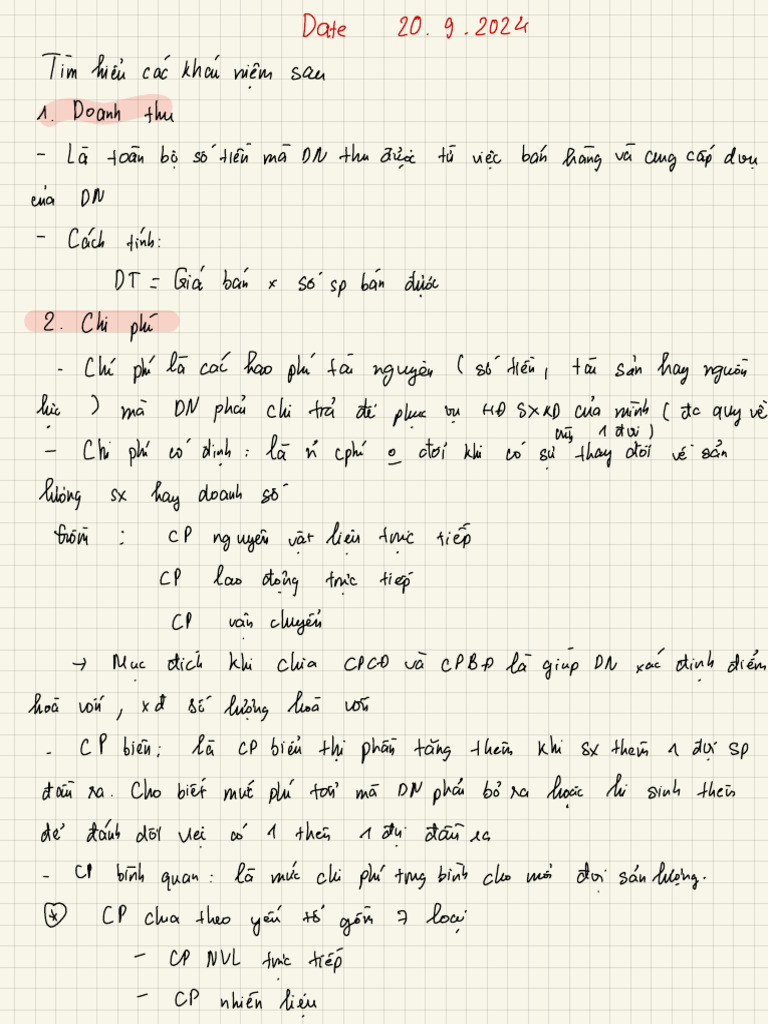 Date 20.9.2024
Tìm hiểu các khái niệm sau
1. Doanh thu
- Là toàn bộ số tiền mà DN thu được từ việc bán hàng và cung cấp dvụ
của DN
- Cách tính:
DT = Giá bán x số sp bán được
2. Chi phí
- Chi phí là các hao phí tài nguyên (số tiền, tài sản hay nguồn
lực) mà DN phải chi trả để phục vụ HĐ SXKD của mình (đc quy về
1 đvi)
- Chi phí cố định: là n~ cphí 0 đổi khi có sự thay đổi về sản
lượng sx hay doanh số
gồm: CP nguyên vật liệu trực tiếp
CP lao động trực tiếp
CP vận chuyển
→ Mục đích khi chia CPCĐ và CPBĐ là giúp DN xác định điểm
hoà vốn, xđ số lượng hoà vốn
- CP biên: là CP biểu thị phần tăng thêm khi sx thêm 1 đvị sp
đầu ra. Cho biết mức phí tổn mà DN phải bỏ ra hoặc hi sinh thêm
để đánh đổi việc có 1 thêm 1 đvị đầu ra
- CP bình quan: là mức chi phí trng bình cho mỗi đvị sản lượng.
* CP chia theo yếu tố gồm 7 loại
- CP NVL trực tiếp
- CP nhiên liệu